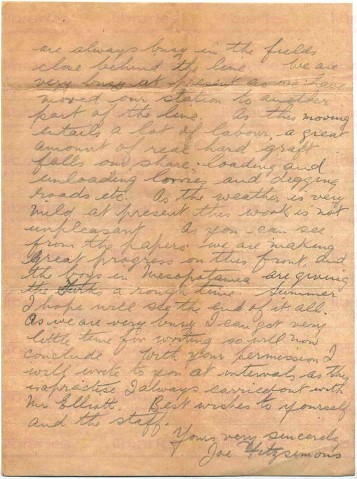 are always busy in the fields
close behind the line. We are
very busy at present as we have
moved our station to another
part of the line. As this moving
entails a lot of labour, a great
amount of real hard graft
falls our share, loading and
unloading lorries and digging
roads etc. As the weather is very
mild at present this work is not
unpleasant. As you can see
from the papers we are making
great progress on this front, and
the boys in Mesopotamia are giving
the Turks a rough time. Summer
I hope will see the end of it all.
As we are very busy I can get very
little time for writing so will now
conclude. With your permission I
will write to you at intervals as this
is practise I always carried out with
Mr Elliott. Best wishes to yourself
and the staff.
Yours very sincerely
Joe Fitzsimons